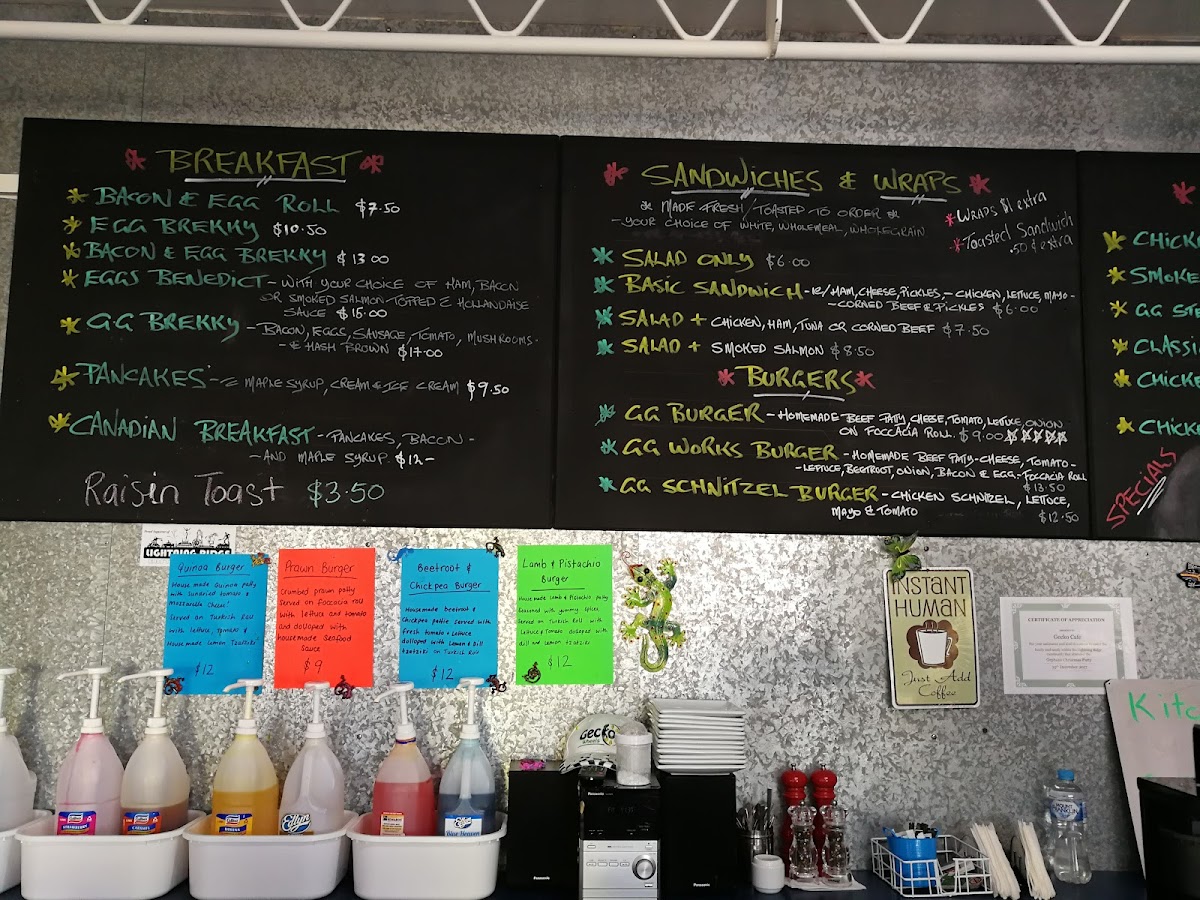 BREAKFAST
BACON & EGG ROLL $7.50
EGG BREKKY $10.50
BACON & EGG BREKKY $13.00
EGGS BENEDICT - WITH YOUR CHOICE OF HAM, BACON
OR SMOKED SALMON TOPPED & HOLLANDAISE
SAUCE $15.00
GG BREKKY - BACON, EGGS, SAUSAGE, TOMATO, MUSHROOMS -
- & HASH BROWN $17.00
PANCAKES - MAPLE SYRUP, CREAM & ICE CREAM $9.50
CANADIAN BREAKFAST - PANCAKES, BACON -
- AND MAPLE SYRUP. $12-
Raisin Toast $3.50
SANDWICHES & WRAPS
MADE FRESH/TOASTED TO ORDER
- YOUR CHOICE OF WHITE, WHOLEMEAL, WHOLEGRAIN
WRAPS $1 extra
Toasted Sandwich
.50 ¢ extra
SALAD ONLY $6.00
BASIC SANDWICH - HAM, CHEESE, PICKLES, - CHICKEN, LETTUCE, MAYO -
- CORNED BEEF & PICKLES $6.00
SALAD + CHICKEN, HAM, TUNA OR CORNED BEEF $7.50
SALAD + SMOKED SALMON $8.50
BURGERS
GG BURGER - HOMEMADE BEEF PATTY, CHEESE, TOMATO, LETTUCE, ONION
ON FOCCACIA ROLL. $9.00
GG WORKS BURGER - HOMEMADE BEEF PATTY - CHEESE, TOMATO -
- LETTUCE, BEETROOT, ONION, BACON & EGG - FOCCACIA ROLL
$13.50
GG SCHNITZEL BURGER - CHICKEN SCHNITZEL, LETTUCE,
MAYO & TOMATO
$12.50
CHICK
SMOKE
GG STE
CLASSI
CHICKE
CHICKE
SPECIALS
LIGHTNING RIDGE
Quinoa Burger
House made Quinoa patty
with sundried tomato &
Mozzarella cheese
Served on Turkish Roll
with lettuce, Tomato &
House made Lemon Tzatziki
$12
Prawn Burger
Crumbed prawn patty
Served on Foccacia roll
with lettuce and tomato
and dolloped with
housemade Seafood
Sauce
$9
Beetroot &
Chickpea Burger
Housemade beetroot &
chickpea pattie served with
fresh tomato & lettuce
dolloped with Lemon & Dill
tzatziki on Turkish Roll
$12
Lamb & Pistachio
Burger
House made Lamb & Pistachio patty
seasoned with yummy spices
Served on Turkish Roll with
Lettuce & Tomato dolloped with
dill and lemon tzatziki
$12
INSTANT
HUMAN
Just Add
Coffee
CERTIFICATE OF APPRECIATION
Gecko Cafe
Kitc
Gecko
Panasonic
Panasonic
Panasonic
STRAWBERRY
CARAMEL
BANANA
Edlyn
Blue Heaven
MOUNT
FRANKLIN